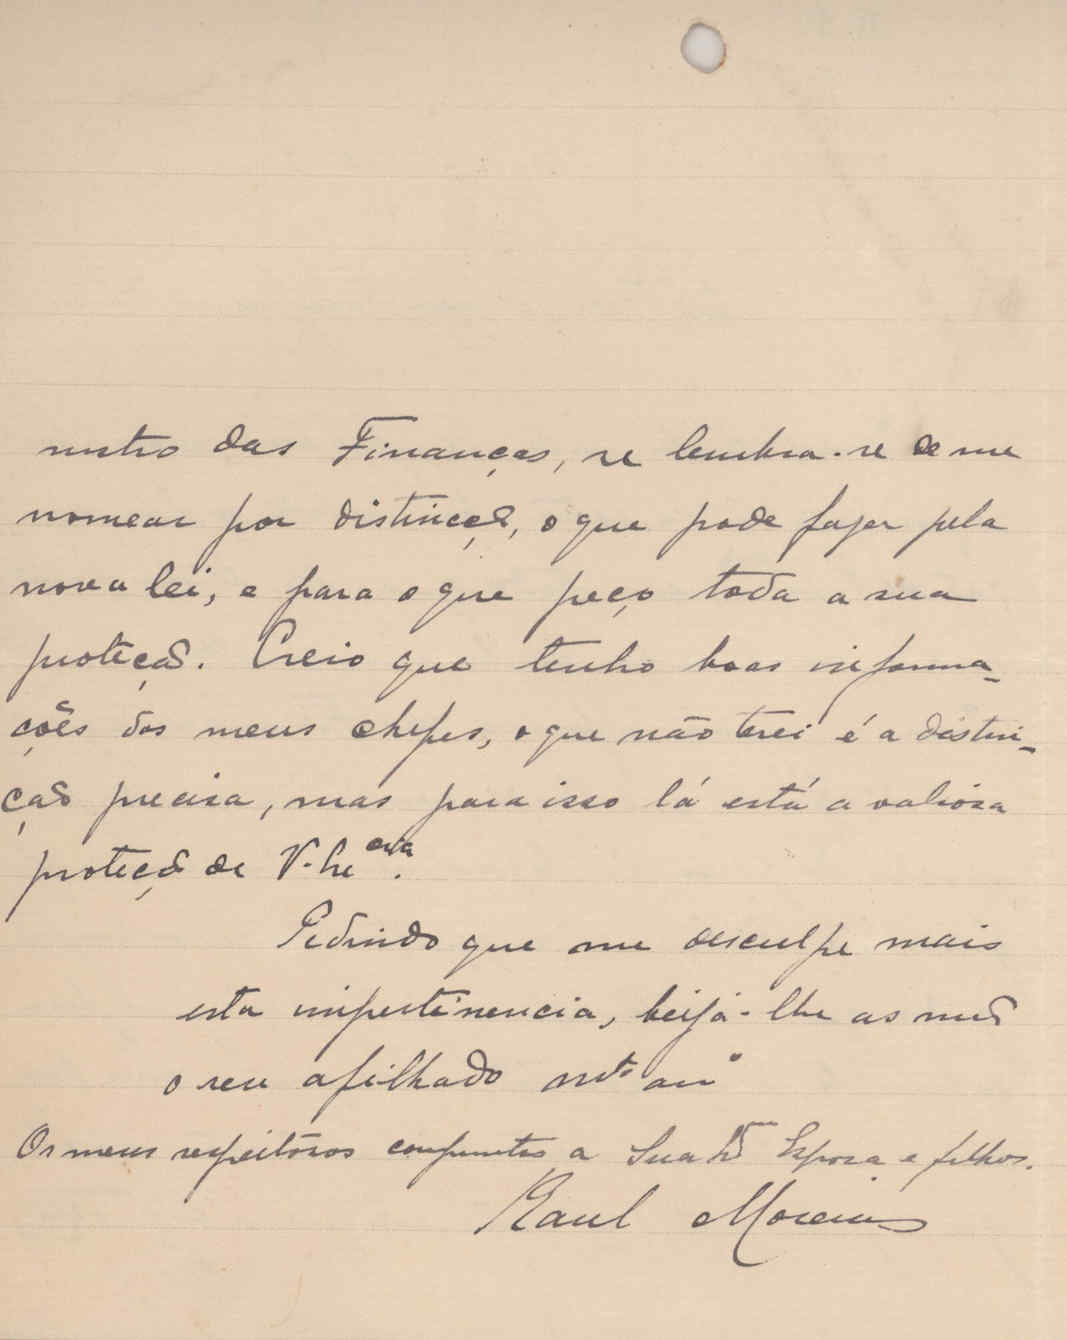 nistro das Finanças, se lembra-se de me
nomear por distincção, o que pode fazer pela
nova lei, e para o que peço toda a sua
proteção. Creio que tenho boas informa-
ções dos meus chefes, o que não terei é a distin-
ção precisa, mas para isso lá está a valiosa
proteção de V. Ex.cia.
Pedindo que me desculpe mais
esta impertinencia, beija-lhe as mãos
o seu afilhado m.to am.o
Os meus respeitosos cumprimentos a Sua Esposa e filhos.
Raul Moreira